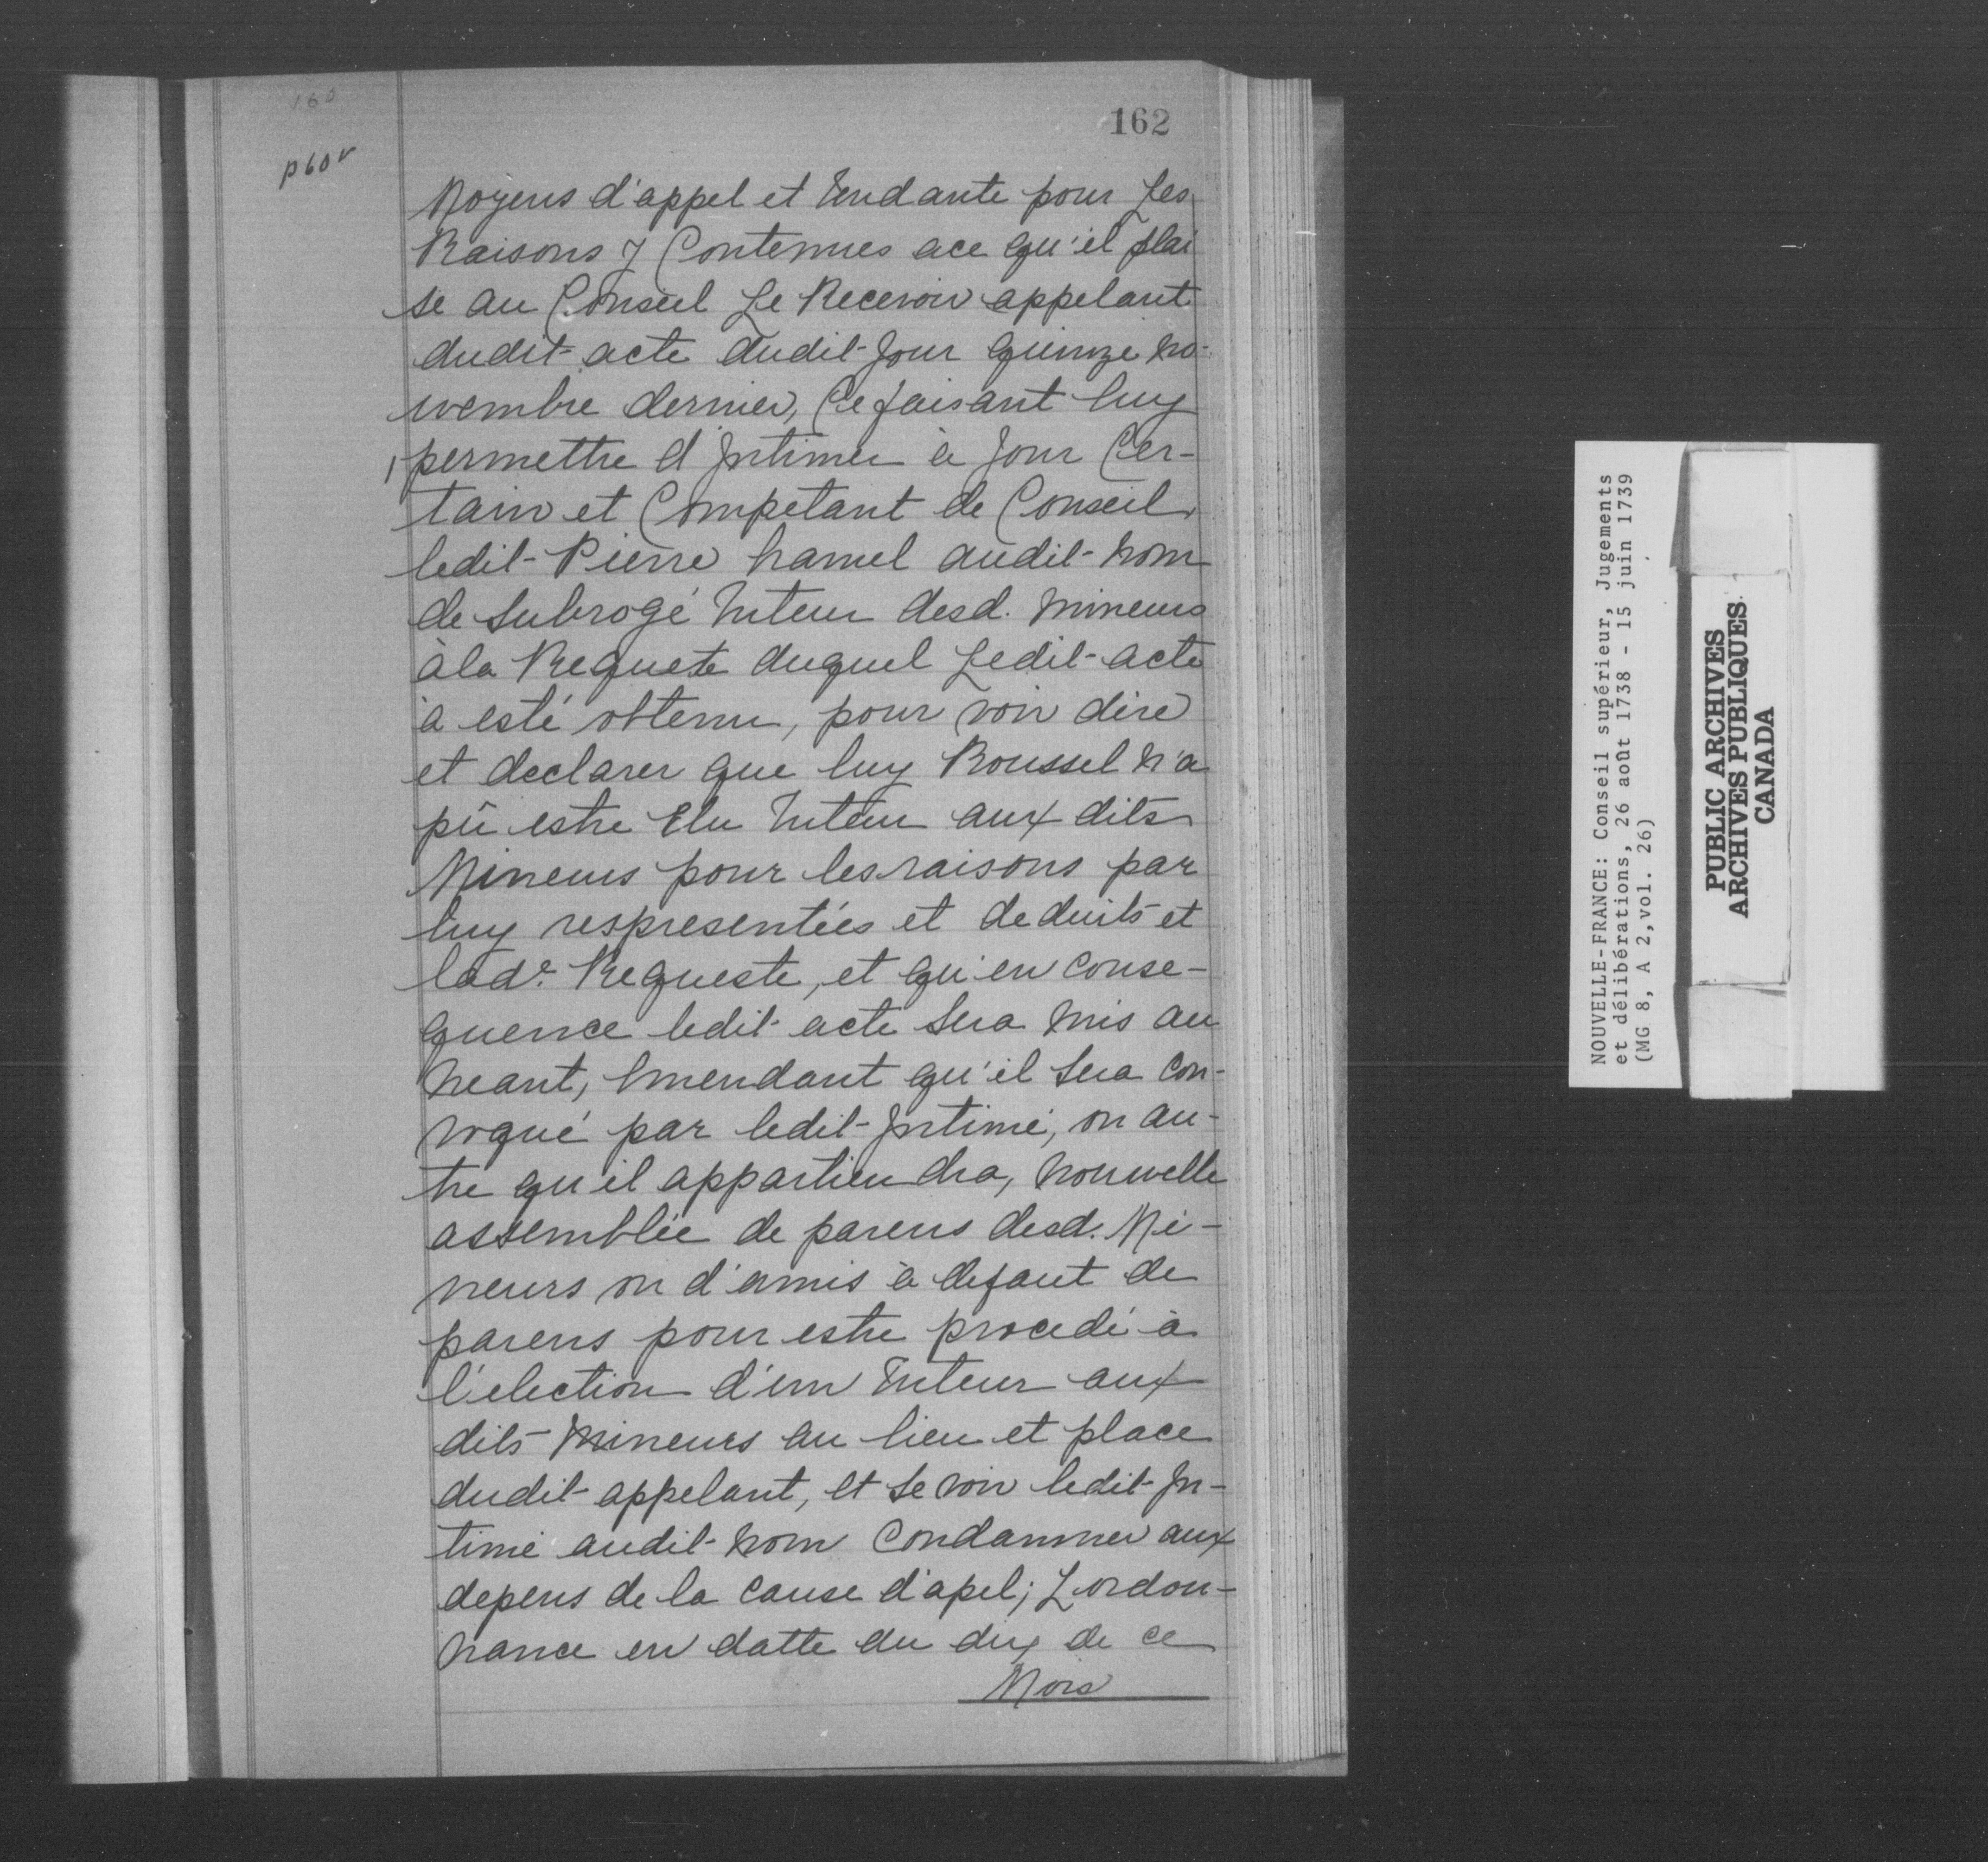 160
162
p60v
Moyens d'appel et tendante pour Les
Raisons y Contenues ace qu'il plai
se au Conseil Le Recevoir appelant
dudit acte dudit Jour quinze no-
vembre dernier, Ce faisant luy
permettre d Intimer à Jour Cer-
tain et Competant de Conseil
ledit Pierre hamel audit nom
de Subrogé tuteur desd. Mineurs
àla Requeste duquel Ledit acte
à esté obtenu, pour voir dire
et declarer que luy Roussel n'a
pû estre Elu tuteur aux dits
Mineurs pour les raisons par
luy respresentées et deduits et
lade Requeste, et qu'en conse-
quence ledit acte Sera mis au
neant, Emendant qu'il Sera con-
voqué par ledit Intimé, ou au-
tre qu'il appartiendra, nouvelle
assemblée de parens desd. Mi-
neurs ou d'amis à defaut de
parens pour estre procedé à
l'election d'un tuteur aux
dits Mineurs au lieu et place
dudit appelant, et se voir ledit In-
timé audit nom Condamner aux
depens de la cause d'apel; L'ordon-
nance en datte du dix de ce
Mois
NOUVELLE-FRANCE: Conseil supérieur, Jugements
et délibérations, 26 août 1738 - 15 juin 1739
(MG 8, A 2, vol. 26)
PUBLIC ARCHIVES
ARCHIVES PUBLIQUES
CANADA